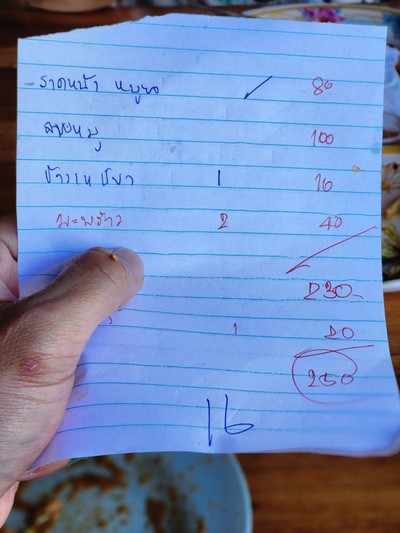 ราดหน้า 80
ลาบหมู 100
ข้าวเหนียว 1 10
มะพร้าว 2 40
230-
1 20
250
16